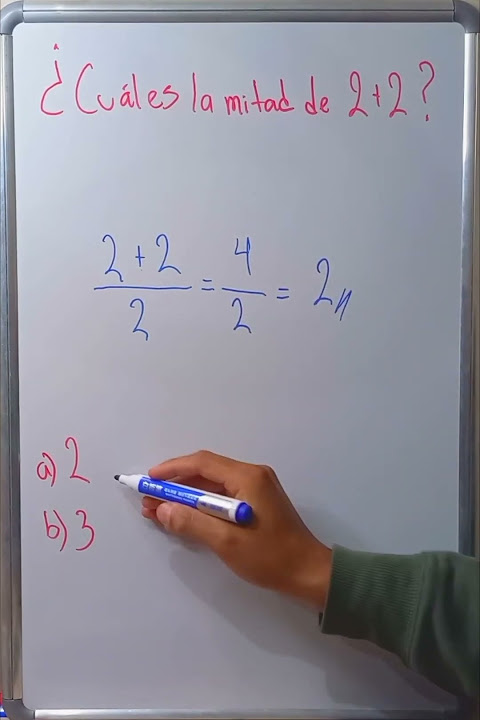 ¿Cuál es la mitad de 2+2?
2+2/2 = 4/2 = 2//
a) 2
b) 3